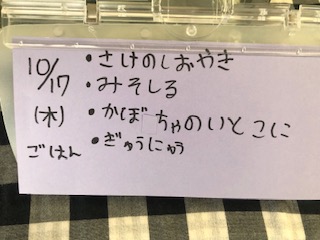 10/17
(木)
ごはん
・さけのしおやき
・みそしる
・かぼちゃのいとこに
・ぎゅうにゅう